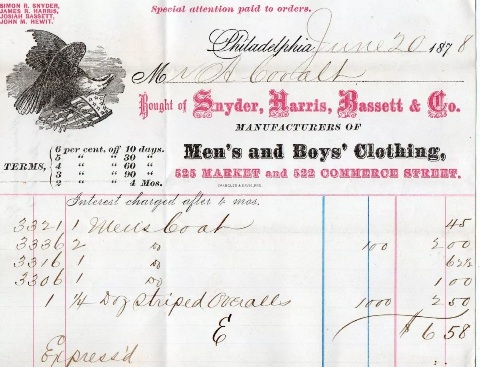 SIMON R. SNYDER,
JAMES R. HARRIS,
JOSIAH BASSETT,
JOHN M. HEWIT.
Special attention paid to orders.
Philadelphia, June 20 1878
M r A Covalt
Bought of Snyder, Harris, Bassett & Co.
MANUFACTURERS OF
Men's and Boys' Clothing,
525 MARKET and 522 COMMERCE STREET.
TERMS,
6 per cent. off 10 days.
5 " " 30 "
4 " " 60 "
3 " " 90 "
2 " " 4 Mos.
Interest charged after 4 mos.
3321 1 Mens Coat 45
3336 2 do 100 2 00
3316 1 do 62½
3306 1 do 1 00
1 ¼ Doz Striped Overalls 1000 2 50
E $ 6 58
Express'd